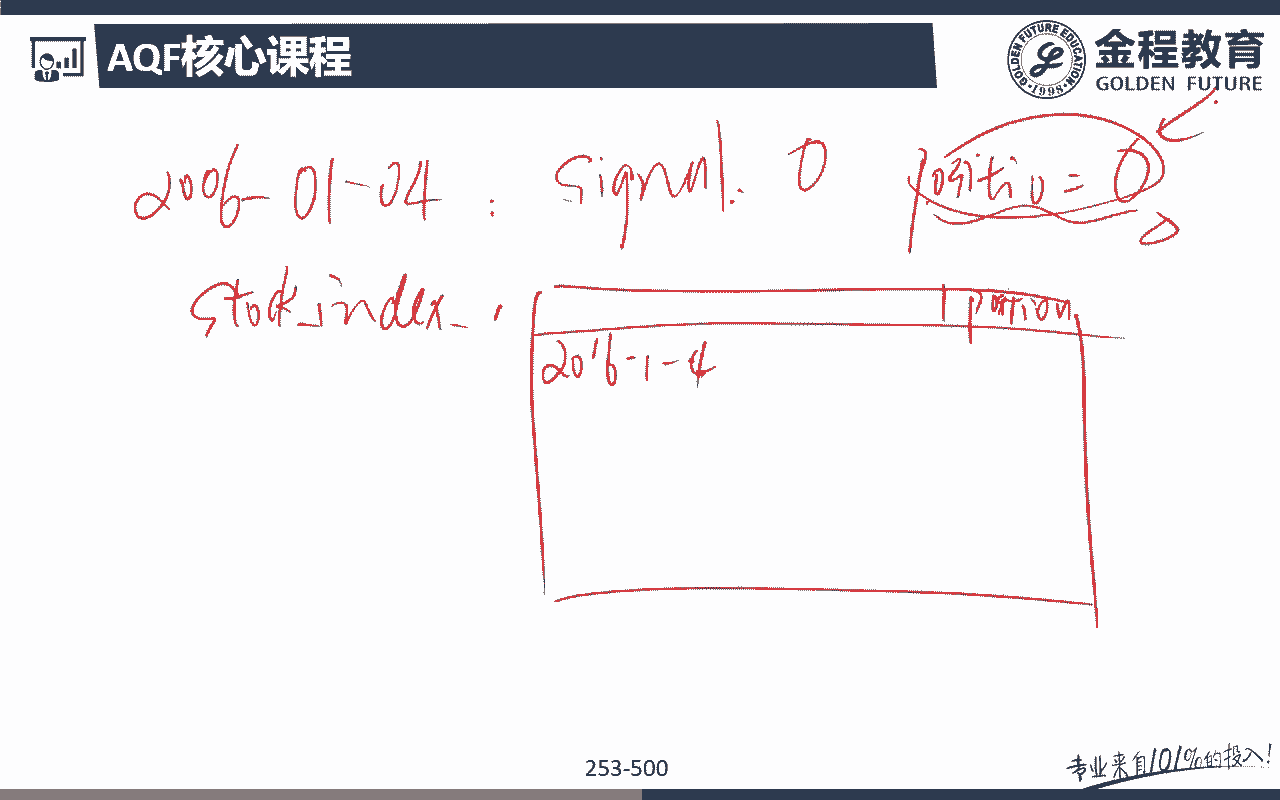 AQF核心课程
GOLDEN FUTURE EDUCATION
·1998·
金程教育
GOLDEN FUTURE
2006-01-04 : Signal. 0 positio = 0
0
Stock_index_ .
position
2016-1-4
253-500
专业来自101%的投入!